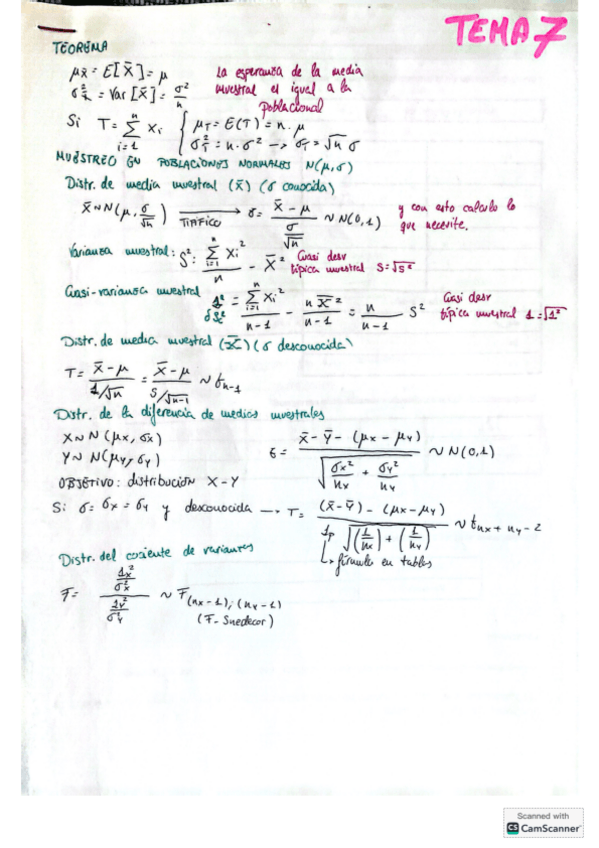 TEMA 7
TEOREMA
μx̄ = E[X̄] = μ
σ²x̄ = Var[X̄] = σ²/n
La esperanza de la media muestral es igual a la poblacional
Si T = Σ(i=1, n) xi { μT = E(T) = n·μ
σ²T = n·σ² → σT = √n σ
MUESTREO EN POBLACIONES NORMALES N(μ,σ)
Distr. de media muestral (x̄) (σ conocida)
X̄ ~ N(μ, σ/√n) → TIPIFICO → z = (X̄ - μ)/(σ/√n) ~ N(0,1) y con esto calculo lo que necesite.
Varianza muestral: S² = Σ(i=1, n) Xi²/n - X̄² Cuasi desv típica muestral S = √S²
Cuasi-varianza muestral s² = Σ(i=1, n) Xi²/(n-1) - n X̄²/(n-1) = n/(n-1) S² Cuasi desv típica muestral s = √s²
Distr. de media muestral (X̄) (σ desconocida)
T = (X̄ - μ)/(s/√n) = (X̄ - μ)/(S/√n-1) ~ t n-1
Distr. de la diferencia de medias muestrales
X ~ N(μx, σx)
Y ~ N(μy, σy)
z = (X̄ - Ȳ - (μx - μy))/√(σx²/nx + σy²/ny) ~ N(0,1)
OBJETIVO: distribución X - Y
Si σ = σx = σy y desconocida → T = ((X̄ - Ȳ) - (μx - μy))/(sp √((1/nx) + (1/ny))) ~ t nx + ny - 2
↳ fórmula en tablas
Distr. del cociente de varianzas
F = (sx²/σx²)/(sy²/σy²) ~ F (nx - 1); (ny - 1)
(F-Snedecor)
Scanned with
CS CamScanner